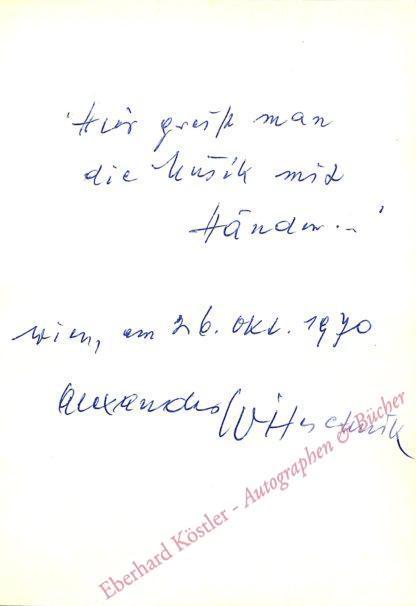 'Hier greift man
die Musik mit
Händen..'
Wien, am 26. Okt. 1970
Alexander Witeschnik
Eberhard Köstler - Autographen & Bücher